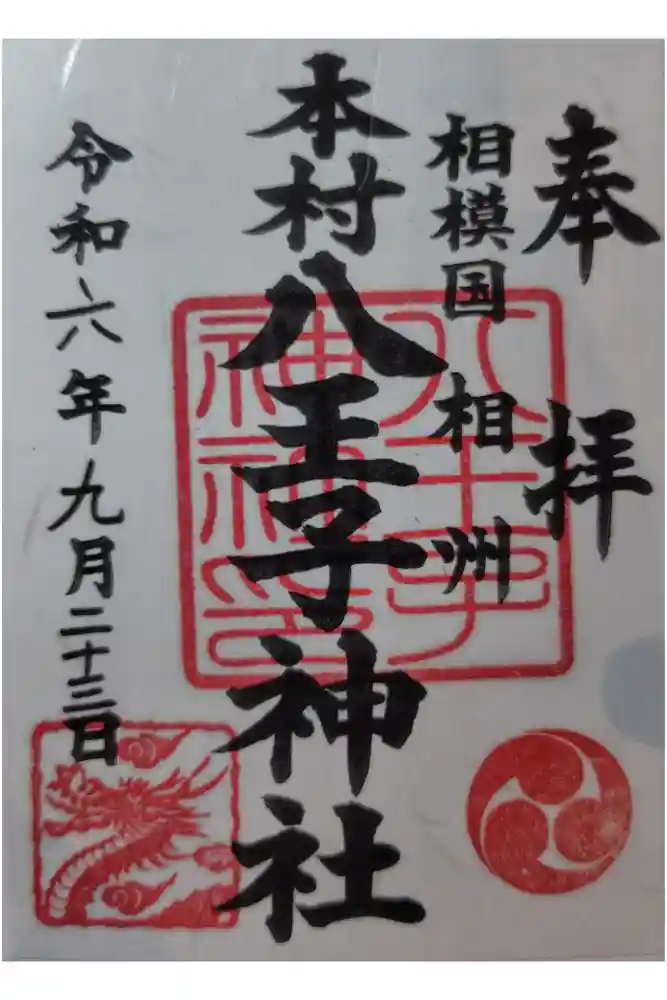 奉拝
相模国 相州
本村八王子神社
八王子
神社印
令和六年九月二十三日